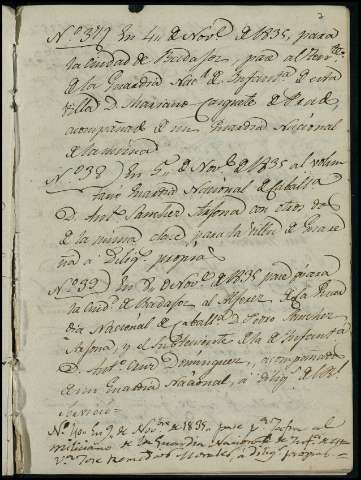 Nº 37) En 4 de Novᵉ de 1835, para
la Ciudad de Badajoz, pasé al Tenᵗᵉ
de la Guardia Nacˡ de Infantᵃ de esta
Villa D. Mariano
acompañado de un Guardia Nacional
de la misma
Nº 38) En 5 de Novᵉ de 1835 al volun
tario Guardia Nacional de Caballᵃ
D. Antº Sanchez Arjona con otros dos
de la misma clase, para la Villa de
á diligᵃ propia
Nº 39) En 8 de Novᵉ de 1835 pasé para
la Ciudᵈ de Badajoz al Alferez de la Guar
dia Nacional de Caballᵃ D. Pedro Sanchez
Arjona, y el Subteniente de la de Infantᵃ
D. Antº Dominguez, acompañado
de un Guardia Nacional, á diligˢ del Rˡ
servicio
Nº 40 En 9 de Novᵇʳᵉ de 1835, pase pᵃ al
miliciano de la Guardia Nacional de de esta
Vᵃ José Morales, á diligˢ propias